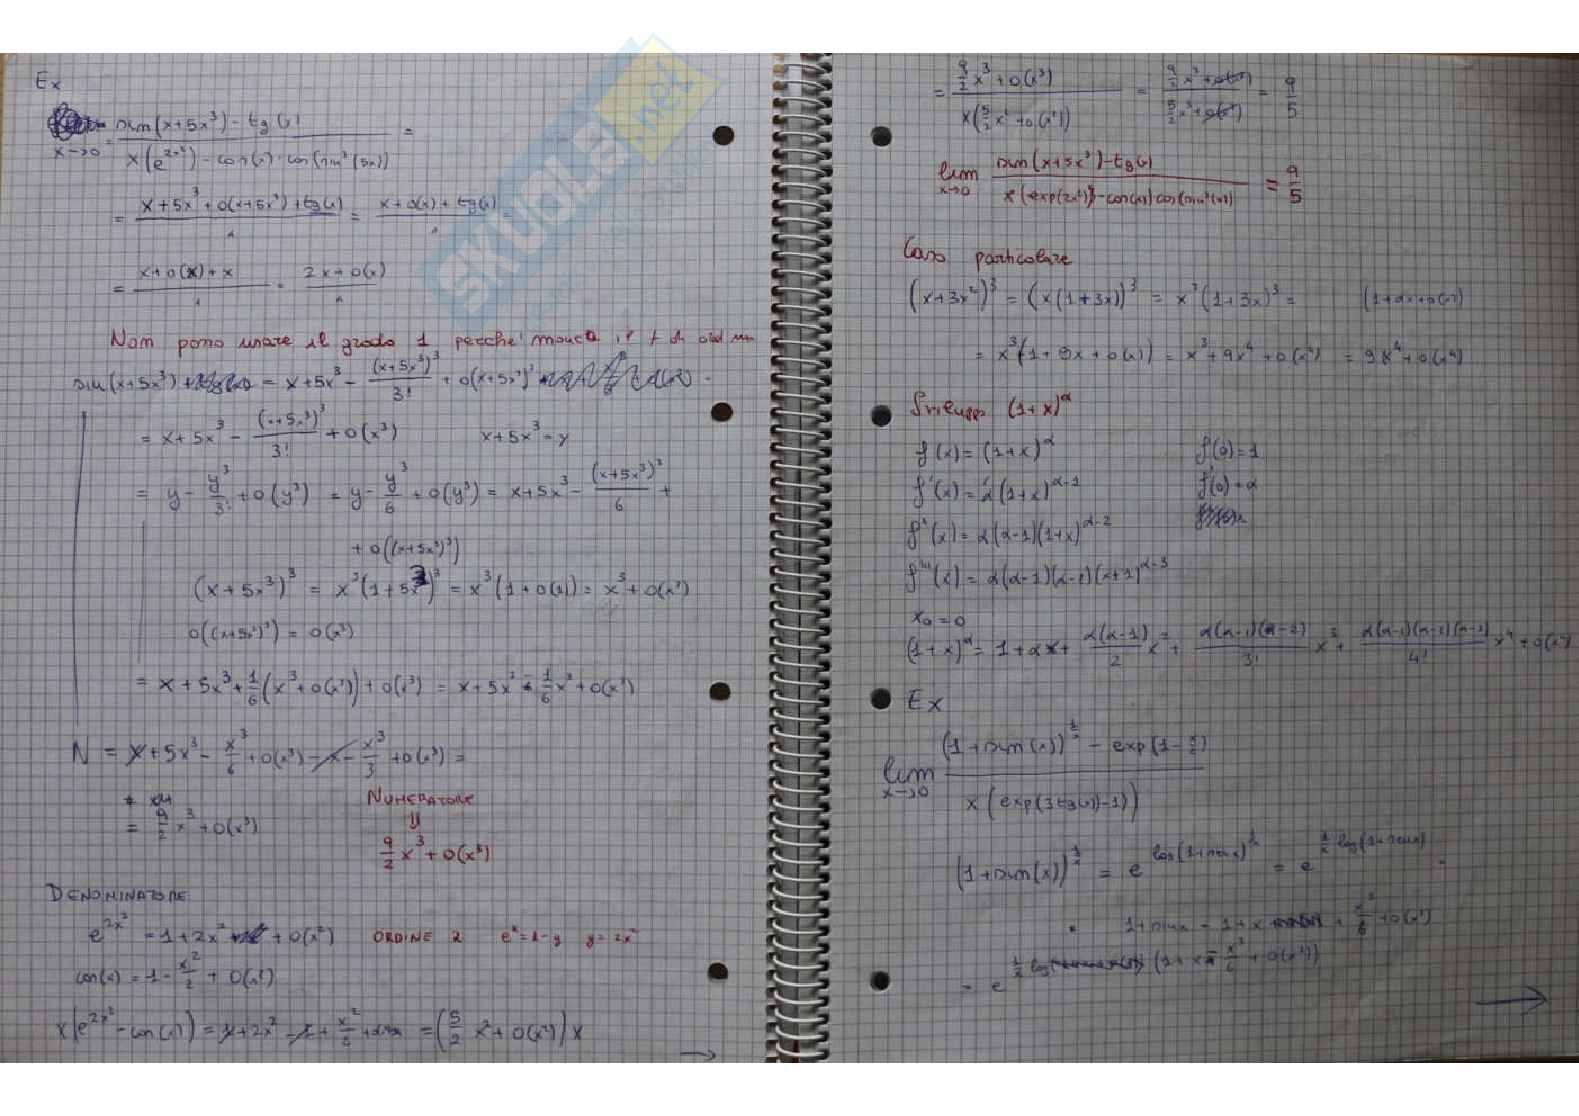 Ex
x→0 sin(x+5x³) - tg(x) / x(e^(2x²)) - cos(x)·cos(sin²(5x)) =
= x+5x³+o(x+5x³)+tg(x) / " = x+o(x)+tg(x) / " =
= x+o(x)+x / " = 2x+o(x) / "
Non posso usare il grado 1 perche'
sin(x+5x³) = x+5x³ - (x+5x³)³/3! + o(x+5x³)³
= x+5x³ - (x+5x³)³/3! + o(x³) x+5x³=y
= y - y³/3! + o(y³) = y - y³/6 + o(y³) = x+5x³ - (x+5x³)³/6 +
+ o((x+5x³)³)
(x+5x³)³ = x³(1+5x²)³ = x³(1+o(x)) = x³+o(x³)
o((x+5x³)³) = o(x³)
= x+5x³+1/6(x³+o(x³))+o(x³) = x+5x³-1/6x³+o(x³)
N = x+5x³ - x³/6 + o(x³) - x - x³/3 + o(x³) =
= 9/2 x³+o(x³)
NUMERATORE
⇓
9/2 x³+o(x³)
DENOMINATORE
e^(2x²) = 1+2x² + o(x²) ORDINE 2 e^x=1-y y=2x²
cos(x) = 1 - x²/2 + o(x²)
x(e^(2x²) - cos(x)) = 1+2x² - 1 + x²/2 = (5/2 x²+o(x²))x
→
= 9/2 x³+o(x³) / x(5/2 x²+o(x²)) = 9/2 x³+o(x³) / 5/2 x³+o(x³) = 9/5
lim x→0 sin(x+5x³)-tg(x) / x(exp(2x²))-cos(x)cos(sin²(5x)) = 9/5
Caso particolare
(x+3x²)³ = (x(1+3x))³ = x³(1+3x)³ = (1+αx+o(x))
= x³(1+9x+o(x)) = x³+9x⁴+o(x⁴) = 9x⁴+o(x⁴)
Sviluppo (1+x)^α
f(x)=(1+x)^α f(0)=1
f'(x)=α(1+x)^(α-1) f'(0)=α
f''(x)=α(α-1)(1+x)^(α-2)
f'''(x)=α(α-1)(α-2)(x+1)^(α-3)
x₀=0
(1+x)^α = 1+αx+ α(α-1)/2 x² + α(α-1)(α-2)/3! x³ + α(α-1)(α-2)(α-3)/4! x⁴+o(x⁴)
Ex
lim x→0 (1+sin(x))^(1/x) - exp(1-x/2) / x(exp(3tg(x))-1))
(1+sin(x))^(1/x) = e^(log(1+sin x)^(1/x)) = e^(1/x log(1+sin x)) =
= 1+sin x = 1+x + x³/6 + o(x³)
= e^(1/x log(1+x - x³/6 + o(x³)))
→